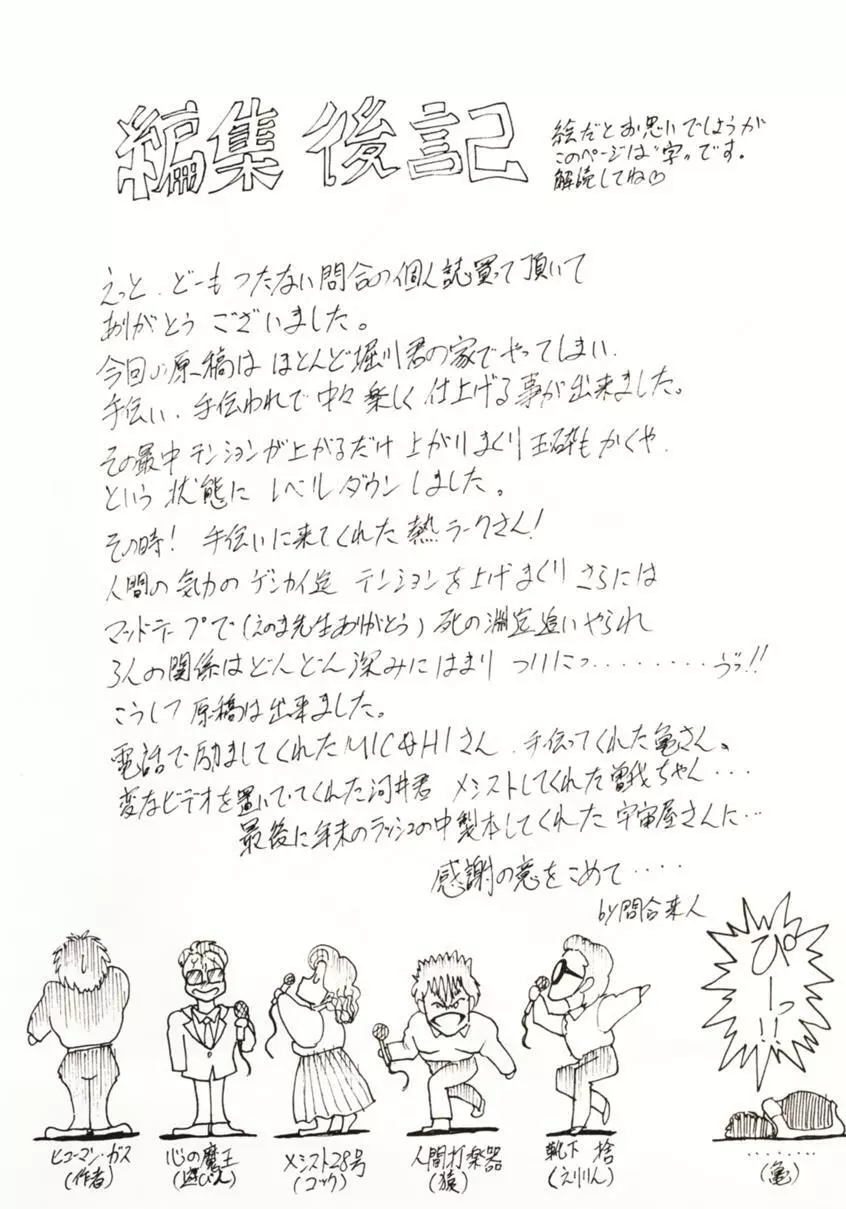 編集後記
絵だとお思いでしょうが
このページは"字"です。
解読してね♡
えっと、どーもつたない問合の個人誌買って頂いて
ありがとうございました。
今回の原稿はほとんど堀川君の家でやってしまい、
手伝い、手伝われで中々楽しく仕上げる事が出来ました。
その最中テンションが上がるだけ上がりまくり玉砕もかくや、
という状態にレベルダウンしました。
その時!手伝いに来てくれた熱ラークさん!
人間の気力のゲンカイ迄テンションを上げまくりさらには
マッドテープで(えのま先生ありがとう)死の淵迄追いやられ
3人の関係はどんどん深みにはまりついにっ‥‥‥‥‥ゔっ!!
こうして原稿は出来ました。
電話で励ましてくれたさん、手伝ってくれた亀さん、
変なビデオを置いてってくれた河井君 メシストしてくれた曽我ちゃん‥‥
最後に年末のラッシュの中製本してくれた宇宙屋さんに‥‥
感謝の意をこめて‥‥‥
by問合来人
ぴーっ!!
ヒューマン・ガス
(作者)
心の魔王
(遊びん)
メシスト28号
(コック)
人間打楽器
(猿)
靴下 捨
(えりりん)
‥‥‥‥
(亀)